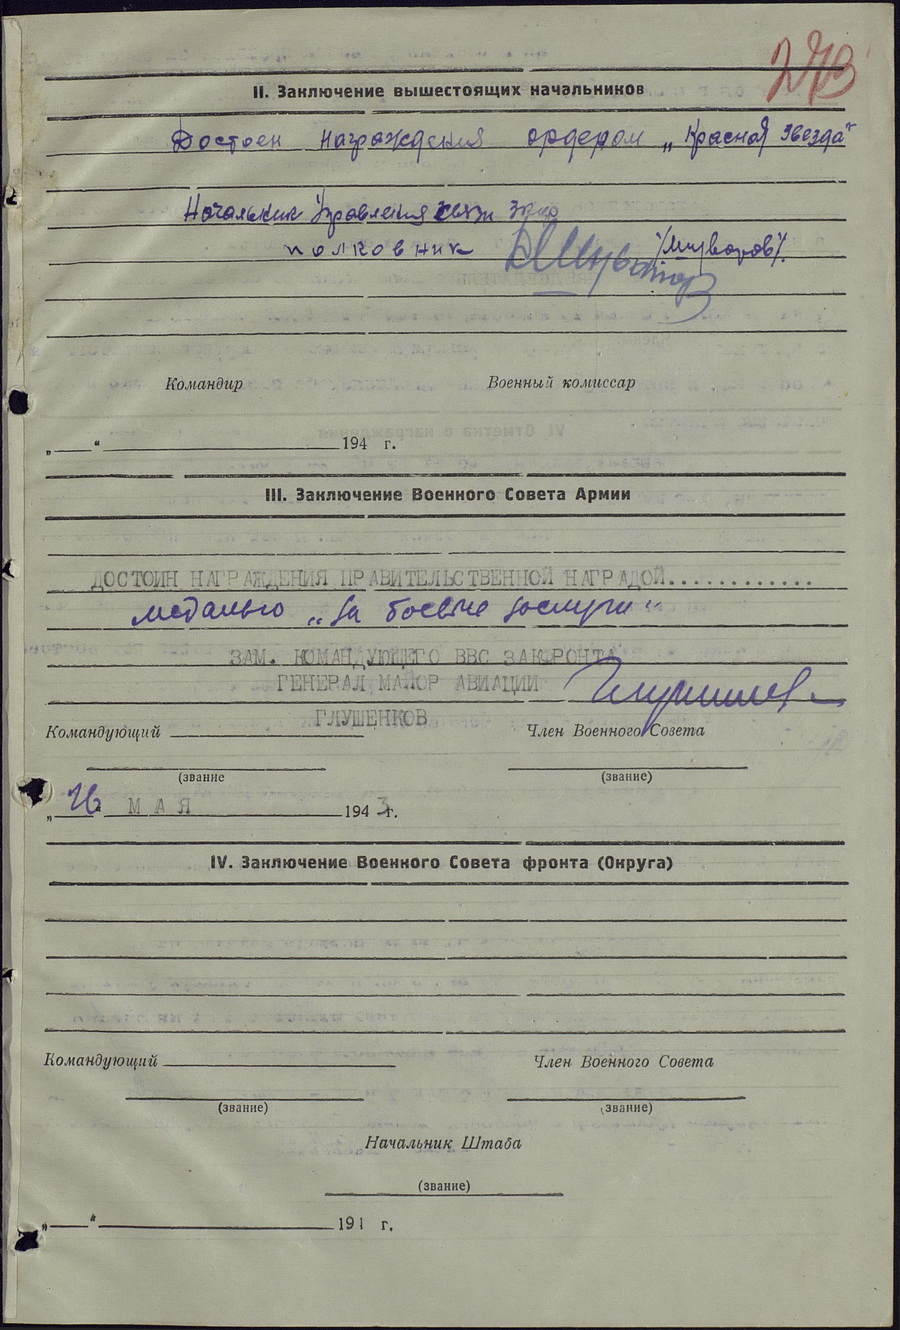 273
II. Заключение вышестоящих начальников
Достоен награждения орденом „Красная звезда"
Начальник Управления связи
полковник
Командир Военный комиссар
„ " 194 г.
III. Заключение Военного Совета Армии
ДОСТОИН НАГРАЖДЕНИЯ ПРАВИТЕЛЬСТВЕННОЙ НАГРАДОЙ............
медалью „За боевые заслуги"
ЗАМ. КОМАНДУЮЩЕГО ВВС ЗАКФРОНТА
ГЕНЕРАЛ МАЙОР АВИАЦИИ
ГЛУШЕНКОВ
Командующий Член Военного Совета
(звание (звание)
„26" МАЯ 1943г.
IV. Заключение Военного Совета фронта (Округа)
Командующий Член Военного Совета
(звание) (звание)
Начальник Штаба
(звание)
„ " 191 г.